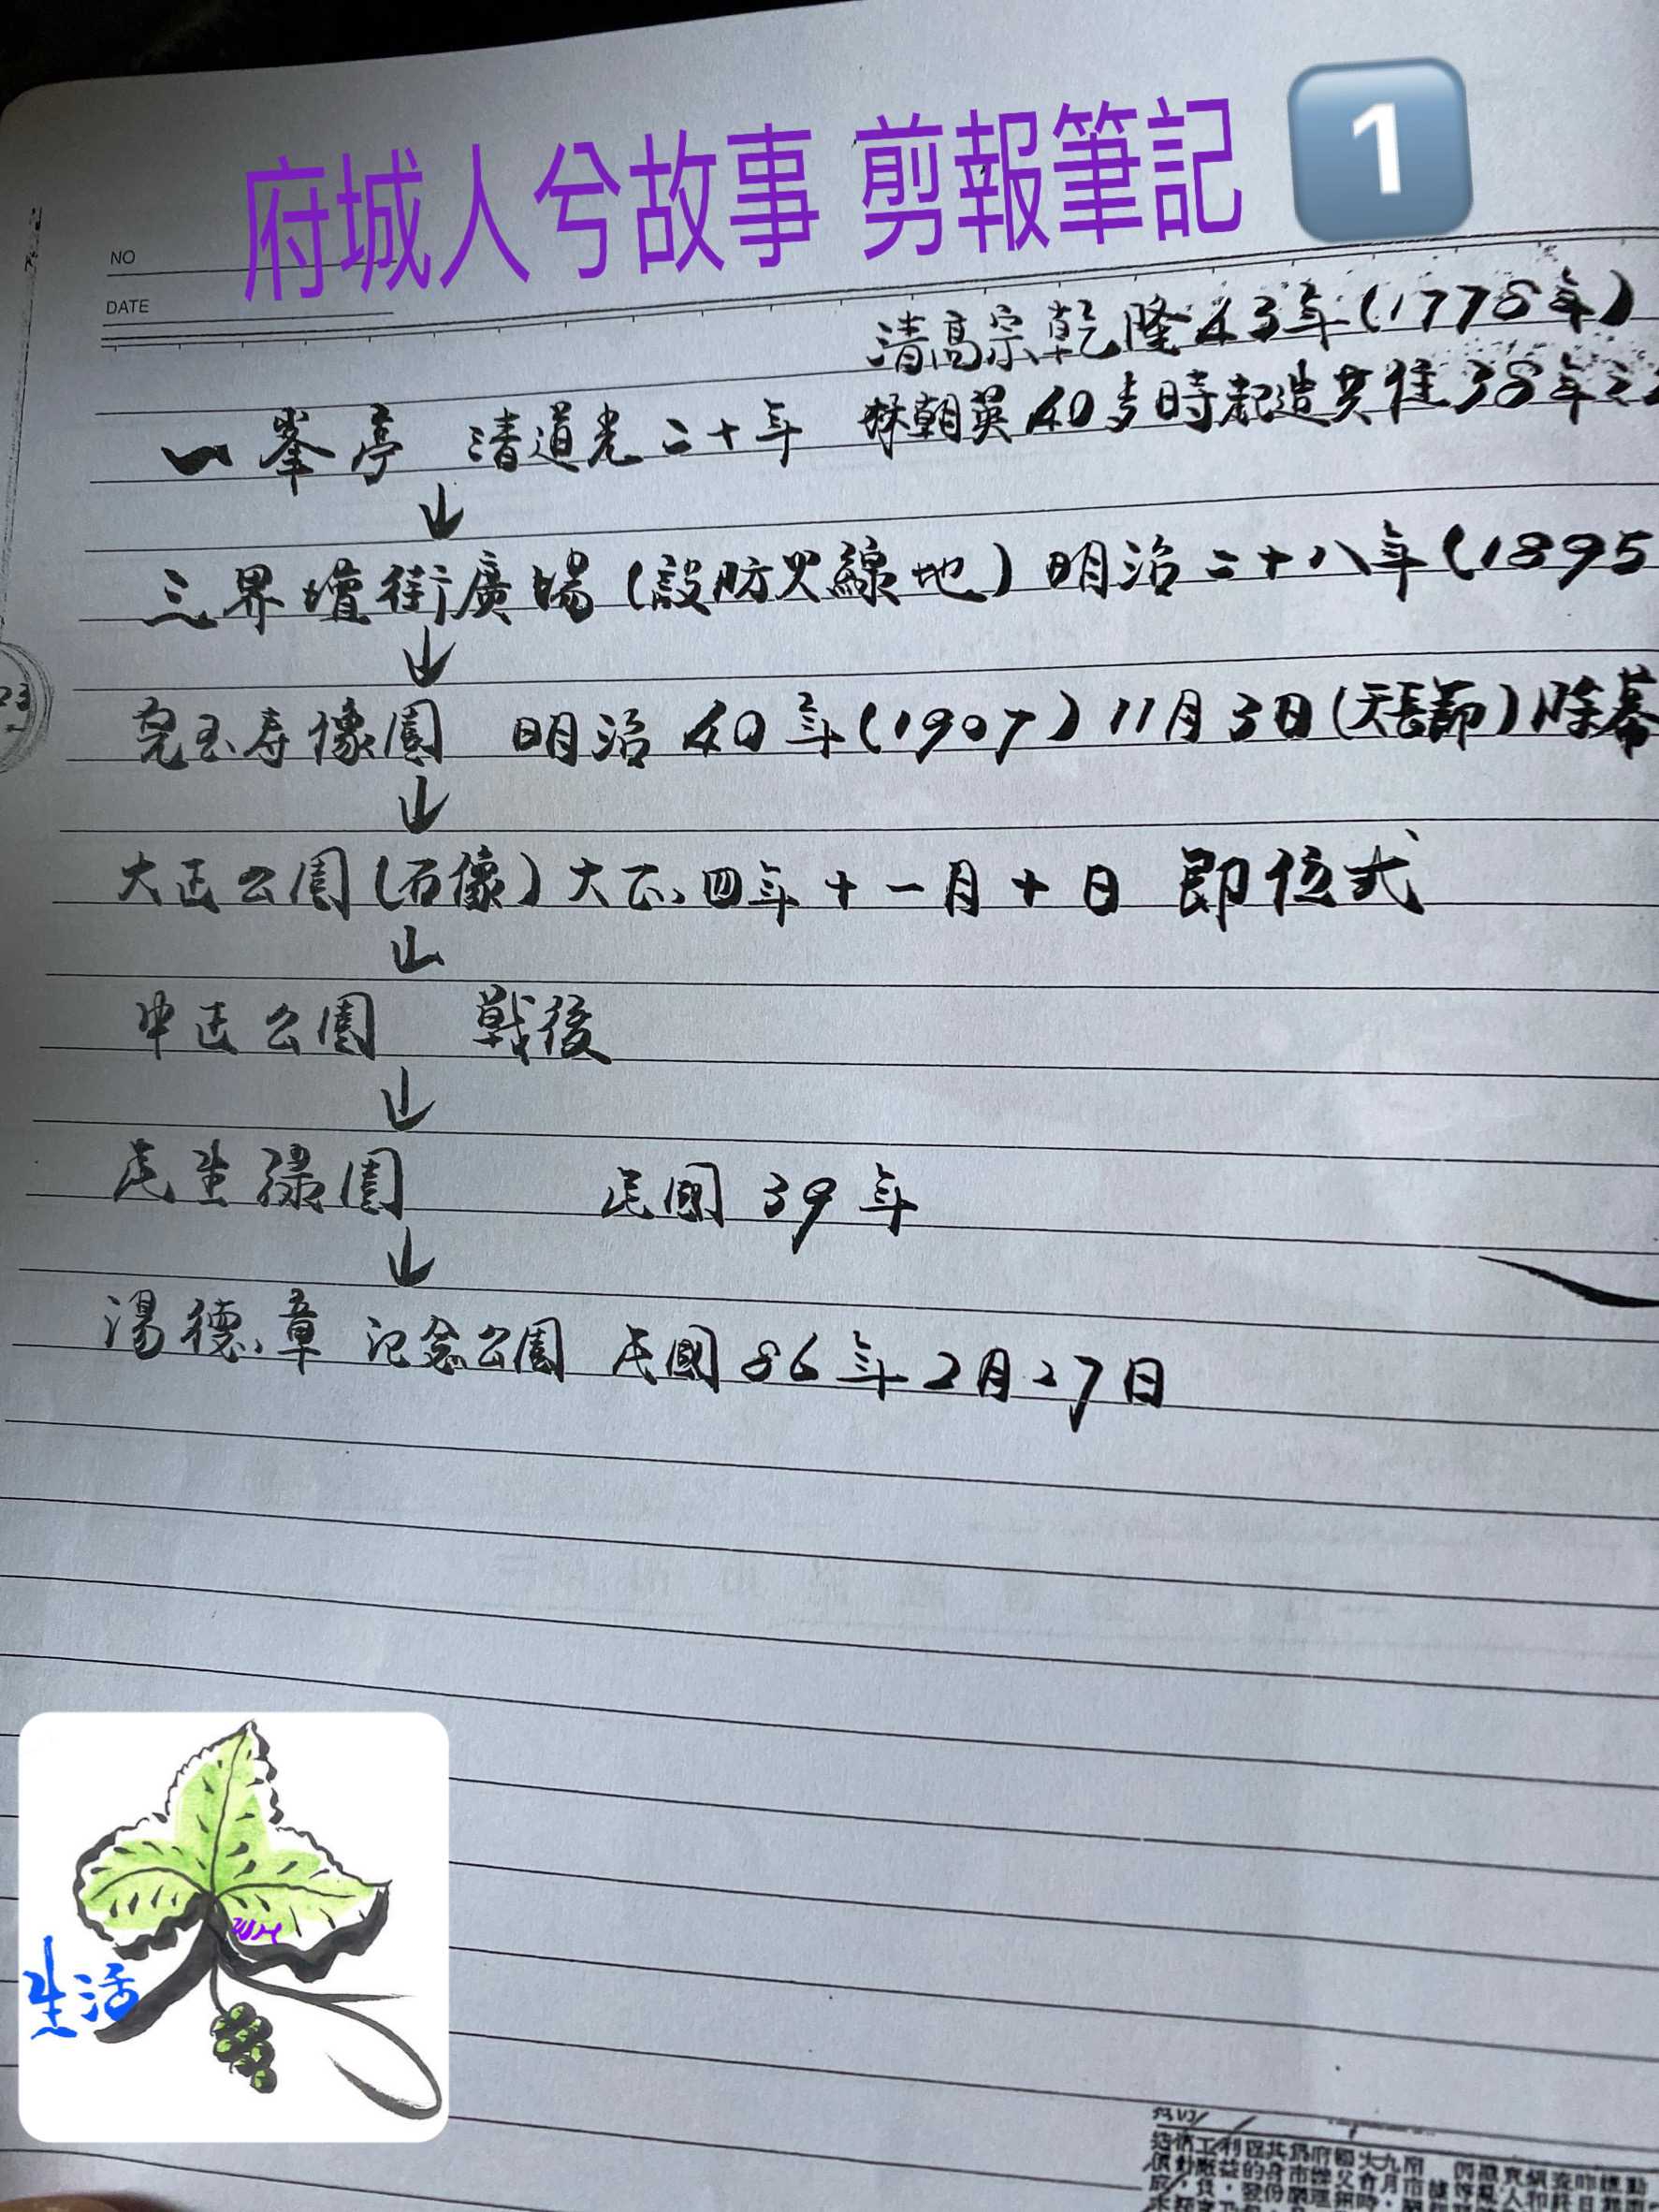 府城人兮故事 剪報筆記 1
NO
DATE
清高宗乾隆43年(1778年)
一峯亭 清道光二十年 林朝英40歲時起造共住38年之
↓
三界壇街廣場(設防火線地)明治二十八年(1895
↓
兒玉寿像園 明治40年(1907)11月3日(天長節)除幕
↓
大正公園(石像)大正四年十一月十日 即位式
↓
中正公園 戰後
↓
民生綠園 民國39年
↓
湯德章 記念公園 民國86年2月27日
WH
生活